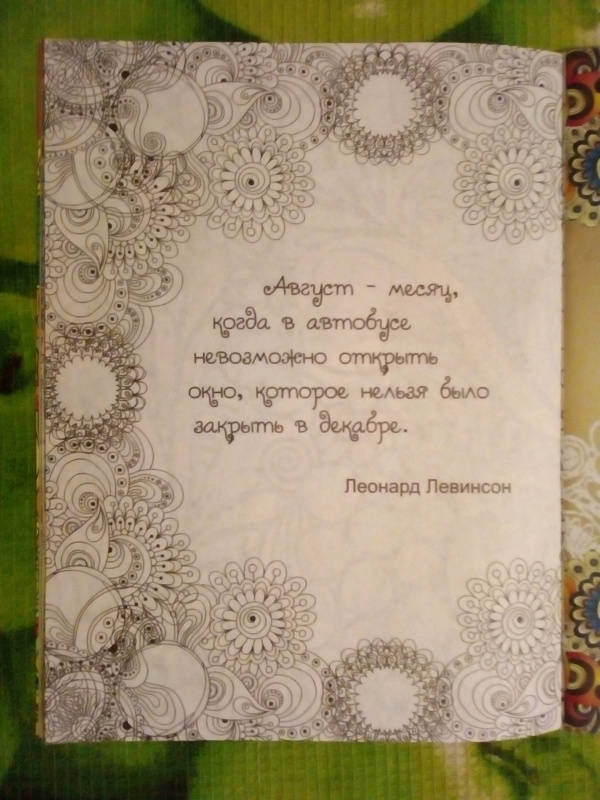 Август - месяц,
когда в автобусе
невозможно открыть
окно, которое нельзя было
закрыть в декабре.
Леонард Левинсон